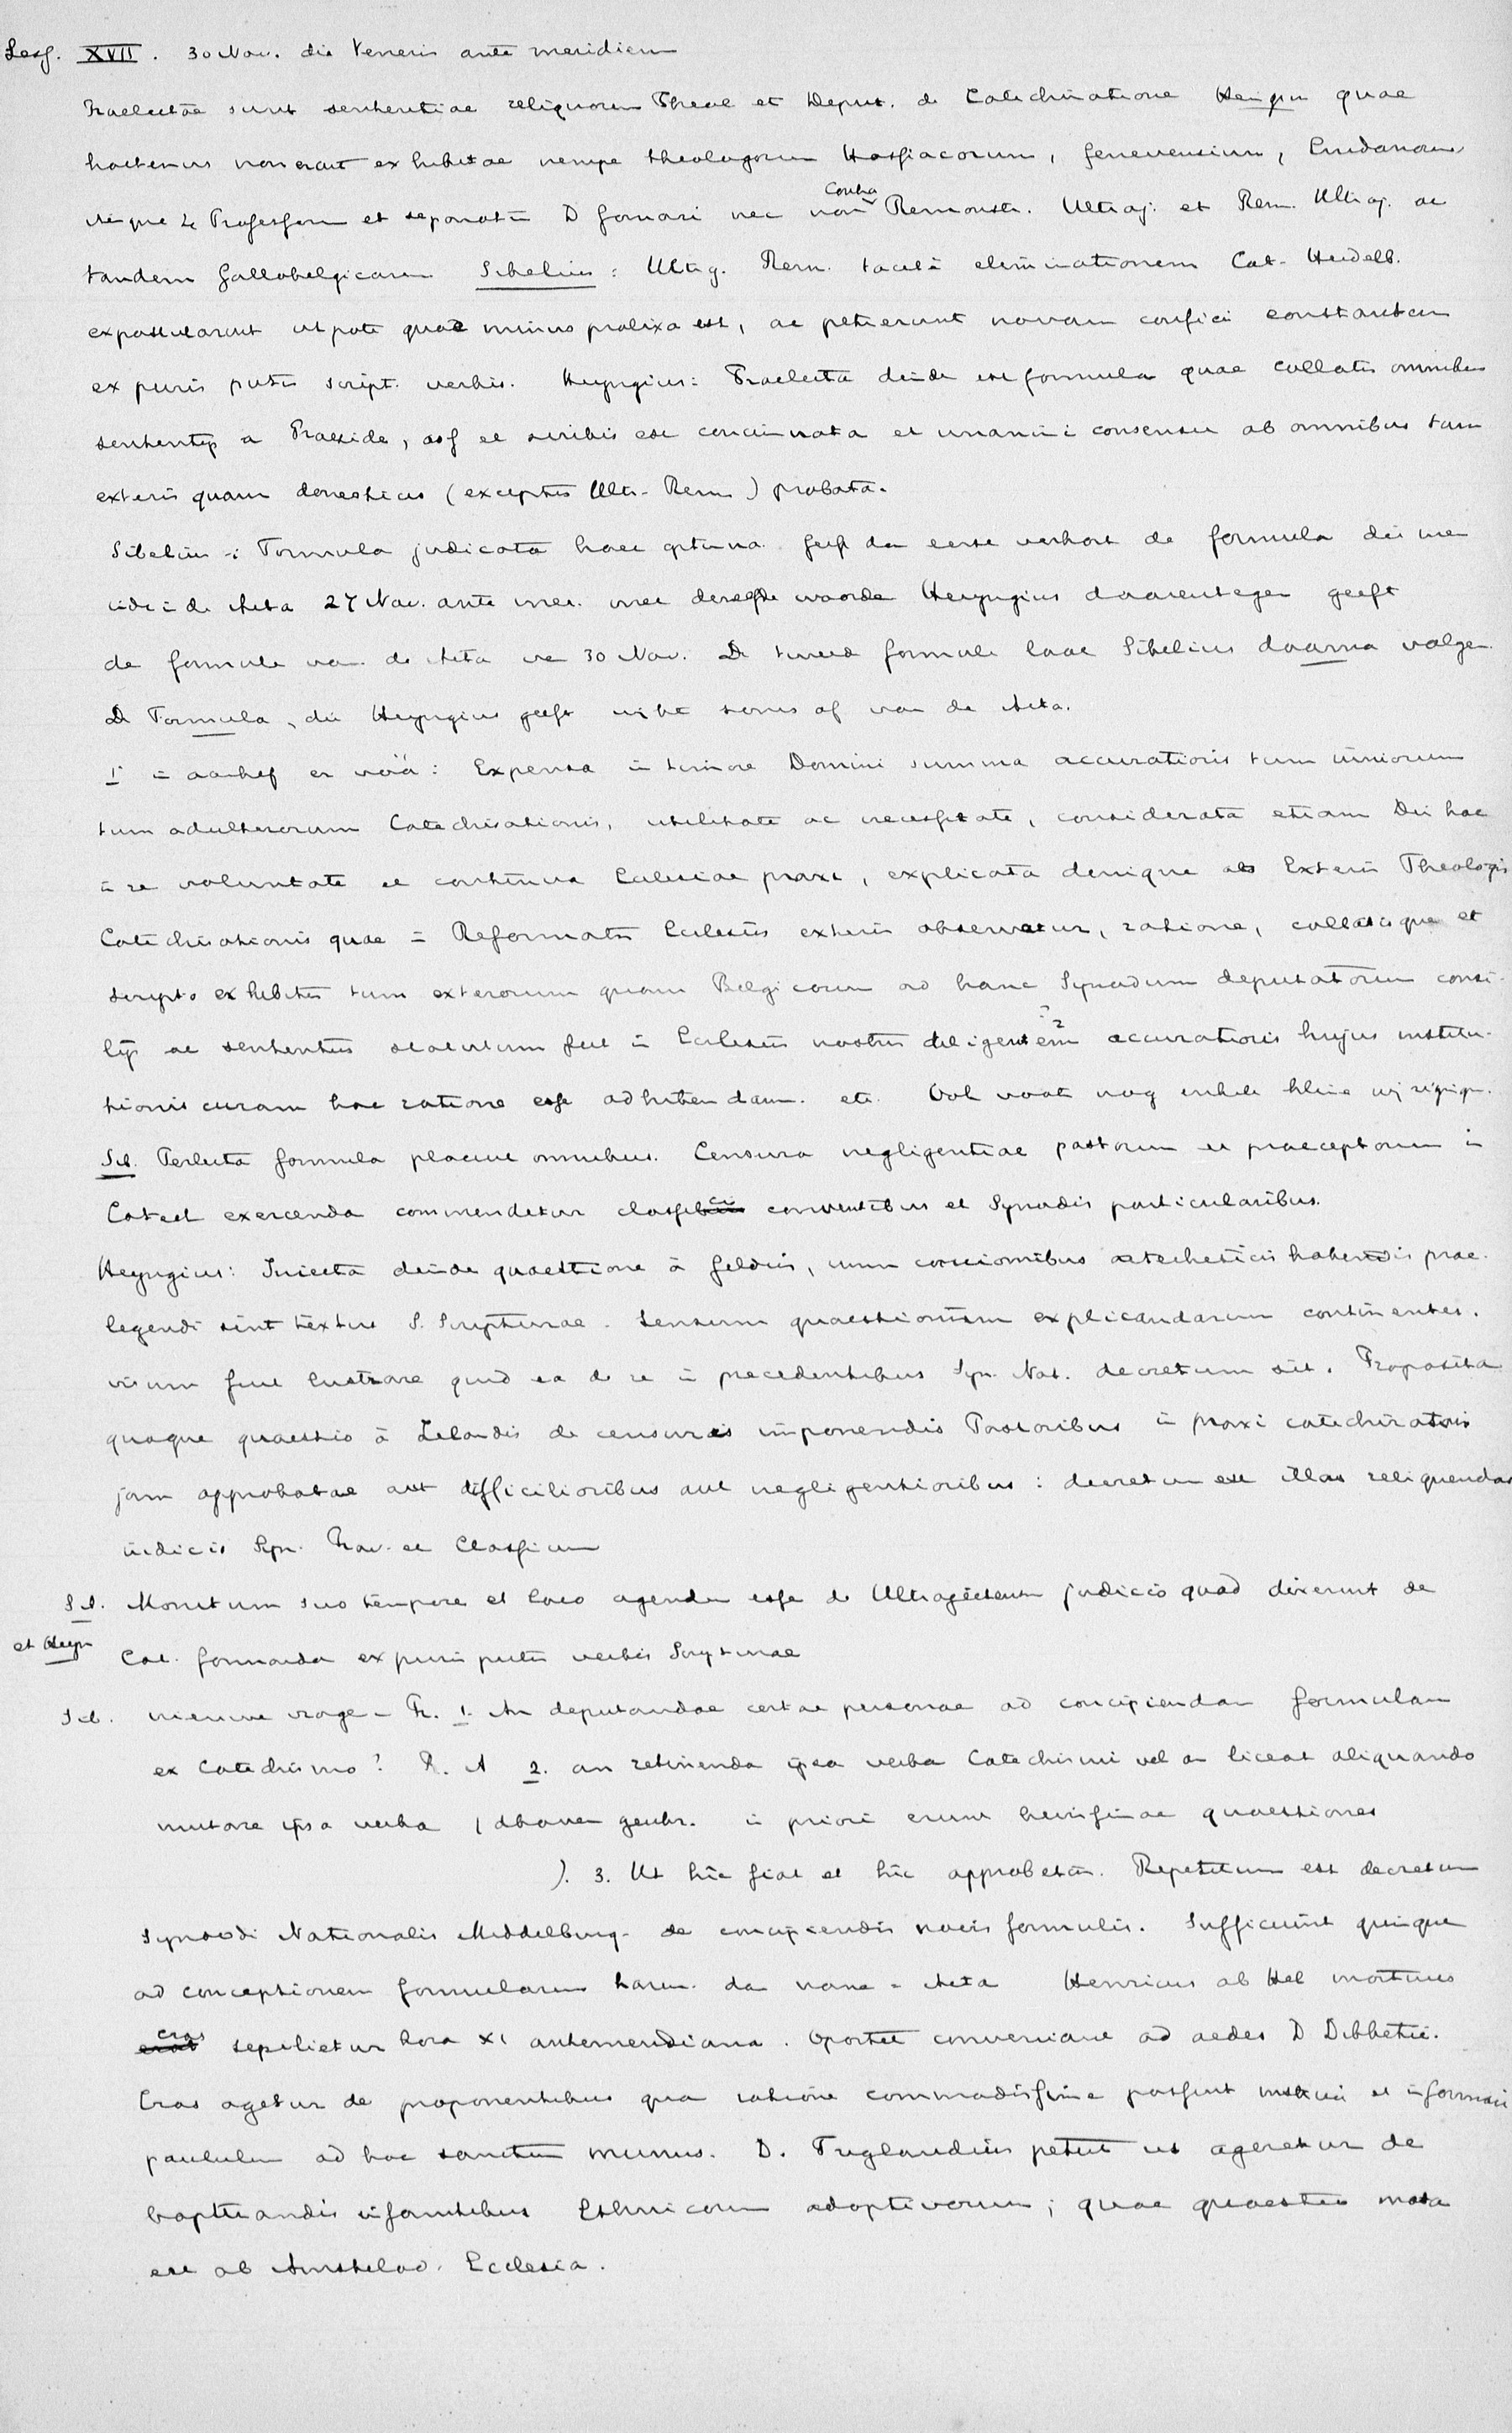 Sess. XVII. 30 Nov. die Veneris ante meridiem
Praelectae sunt sententiae reliquorum Theol et Deput. de Catechisatione quae
hactenus non erant exhibitae nempe theologorum Hassiacorum, Genevensium, Emdanorum
itemque 4 Professorum et separatim D Gomari nec non Contra Remonstr. Ultraj. et Rem. Ultraj. ac
tandem Gallobelgicarum Sibelius: Ultraj. Rem. tacitè eliminationem Cat. Heidelb.
expostularunt utpote quae minus prolixa est, ac petierunt novam confici constantem
ex puris putis script. verbis. Heyngius: Praelecta deinde est formula quae collatis omnibus
sententijs a Praeside, ass et scribis est concinnata et unanimi consensu ab omnibus tam
exteris quam domesticis (exceptis Ultr. Rem) probata.
Sibelius: Formula judicata haec optima. Geeft dan eerst verkort de formula die men
vindt in de Acta 27 Nov. ante mer. met dezelfde woorden Heyngius daarentegen geeft
de formule van de Acta van 30 Nov. De tweede formule laat Sibelius daarna volgen.
De Formula, die Heyngius geeft wijkt soms af van de Acta.
1° in aanhef en : Expensa in timore Domini summa accuratioris tum iuniorum
tum adultiorum Catechisationis, utilitate ac necessitate, considerata etiam Dei hac
in re voluntate et continua Ecclesiae praxi, explicata denique ab Exteris Theologis
Catechisationis quae in Reformatis Ecclesiis exteris observatur, ratione, collatisque et
scripto exhibitis tum exterorum quam Belgicorum ad hanc Synodum deputatorum consi-
lijs ac sententiis statutum fuit in Ecclesiis nostris diligentem ?2 accuratioris hujus institu-
tionis curam hac ratione esse adhibendam. etc. Ook voorts nog enkele kleine wijzigingen.
Sib. Perlecta formula placuit omnibus. Censura negligentiae pastorum et praeceptorum in
Catech exercenda commendetur classicis conventibus et Synodis particularibus.
Heyngius: Iniecta deinde quaestione à Geldris, num concionibus catecheticis habendis prae-
legendi sint textus S. Scripturae. Sensum quaestionum explicandarum continentes.
visum fuit lustrare quid ea de re in precedentibus Syn. Nat. decretum sit. Proposita
quoque quaestio à Zelandis de censuris imponendis Pastoribus in praxi catechisationis
jam approbatae aut difficilioribus aut negligentioribus: decretum est illas relinquendas
iudiciis Syn. Prov. et Classium
Sib. et Heyn Monitum suo tempore et loco agendum esse de Ultrajectensium judicio quod dixerunt de
Cat. formanda ex puris putis verbis Scripturae
Sib. nieuwe vragen Pr. 1. An deputandae certae personae ad concipiendam formulam
ex Catechismo? R. A 2. an retinenda ipsa verba Catechismi vel an liceat aliquando
mutare ipsa verba ( in priori erunt brevissimae quaestiones
). 3. Ut hic fiat et hic approbetur. Repetitum est decretum
Synodi Nationalis Middelburg. de concipiendis novis formulis. Sufficiunt quinque
ad conceptionem formularum harum. dan name in Acta Henricus ab Hel mortuus
cras sepelietur hora XI antemeridiana. Oportet conveniant ad aedes D Dibbetii.
Cras agetur de proponentibus qua ratione commodissime possint institui et informari
paululum ad hoc sanctum munus. D. Triglandius petiit ut ageretur de
baptizandis infantibus Ethnicorum adoptivorum; quae quaestio mota
est ab Amstelod. Ecclesia.